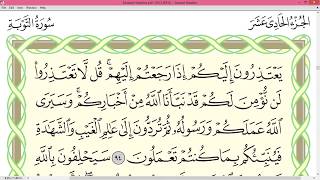 سُورَةُ التَّوۡبَةِ
الجُزۡءُ الحَادِي عَشَرَ
يَعۡتَذِرُونَ إِلَيۡكُمۡ إِذَا رَجَعۡتُمۡ إِلَيۡهِمۡۚ قُل لَّا تَعۡتَذِرُواْ
لَن نُّؤۡمِنَ لَكُمۡ قَدۡ نَبَّأَنَا ٱللَّهُ مِنۡ أَخۡبَارِكُمۡۚ وَسَيَرَى
ٱللَّهُ عَمَلَكُمۡ وَرَسُولُهُۥ ثُمَّ تُرَدُّونَ إِلَىٰ عَٰلِمِ ٱلۡغَيۡبِ وَٱلشَّهَٰدَةِ
فَيُنَبِّئُكُم بِمَا كُنتُمۡ تَعۡمَلُونَ ٩٤ سَيَحۡلِفُونَ بِٱللَّهِ